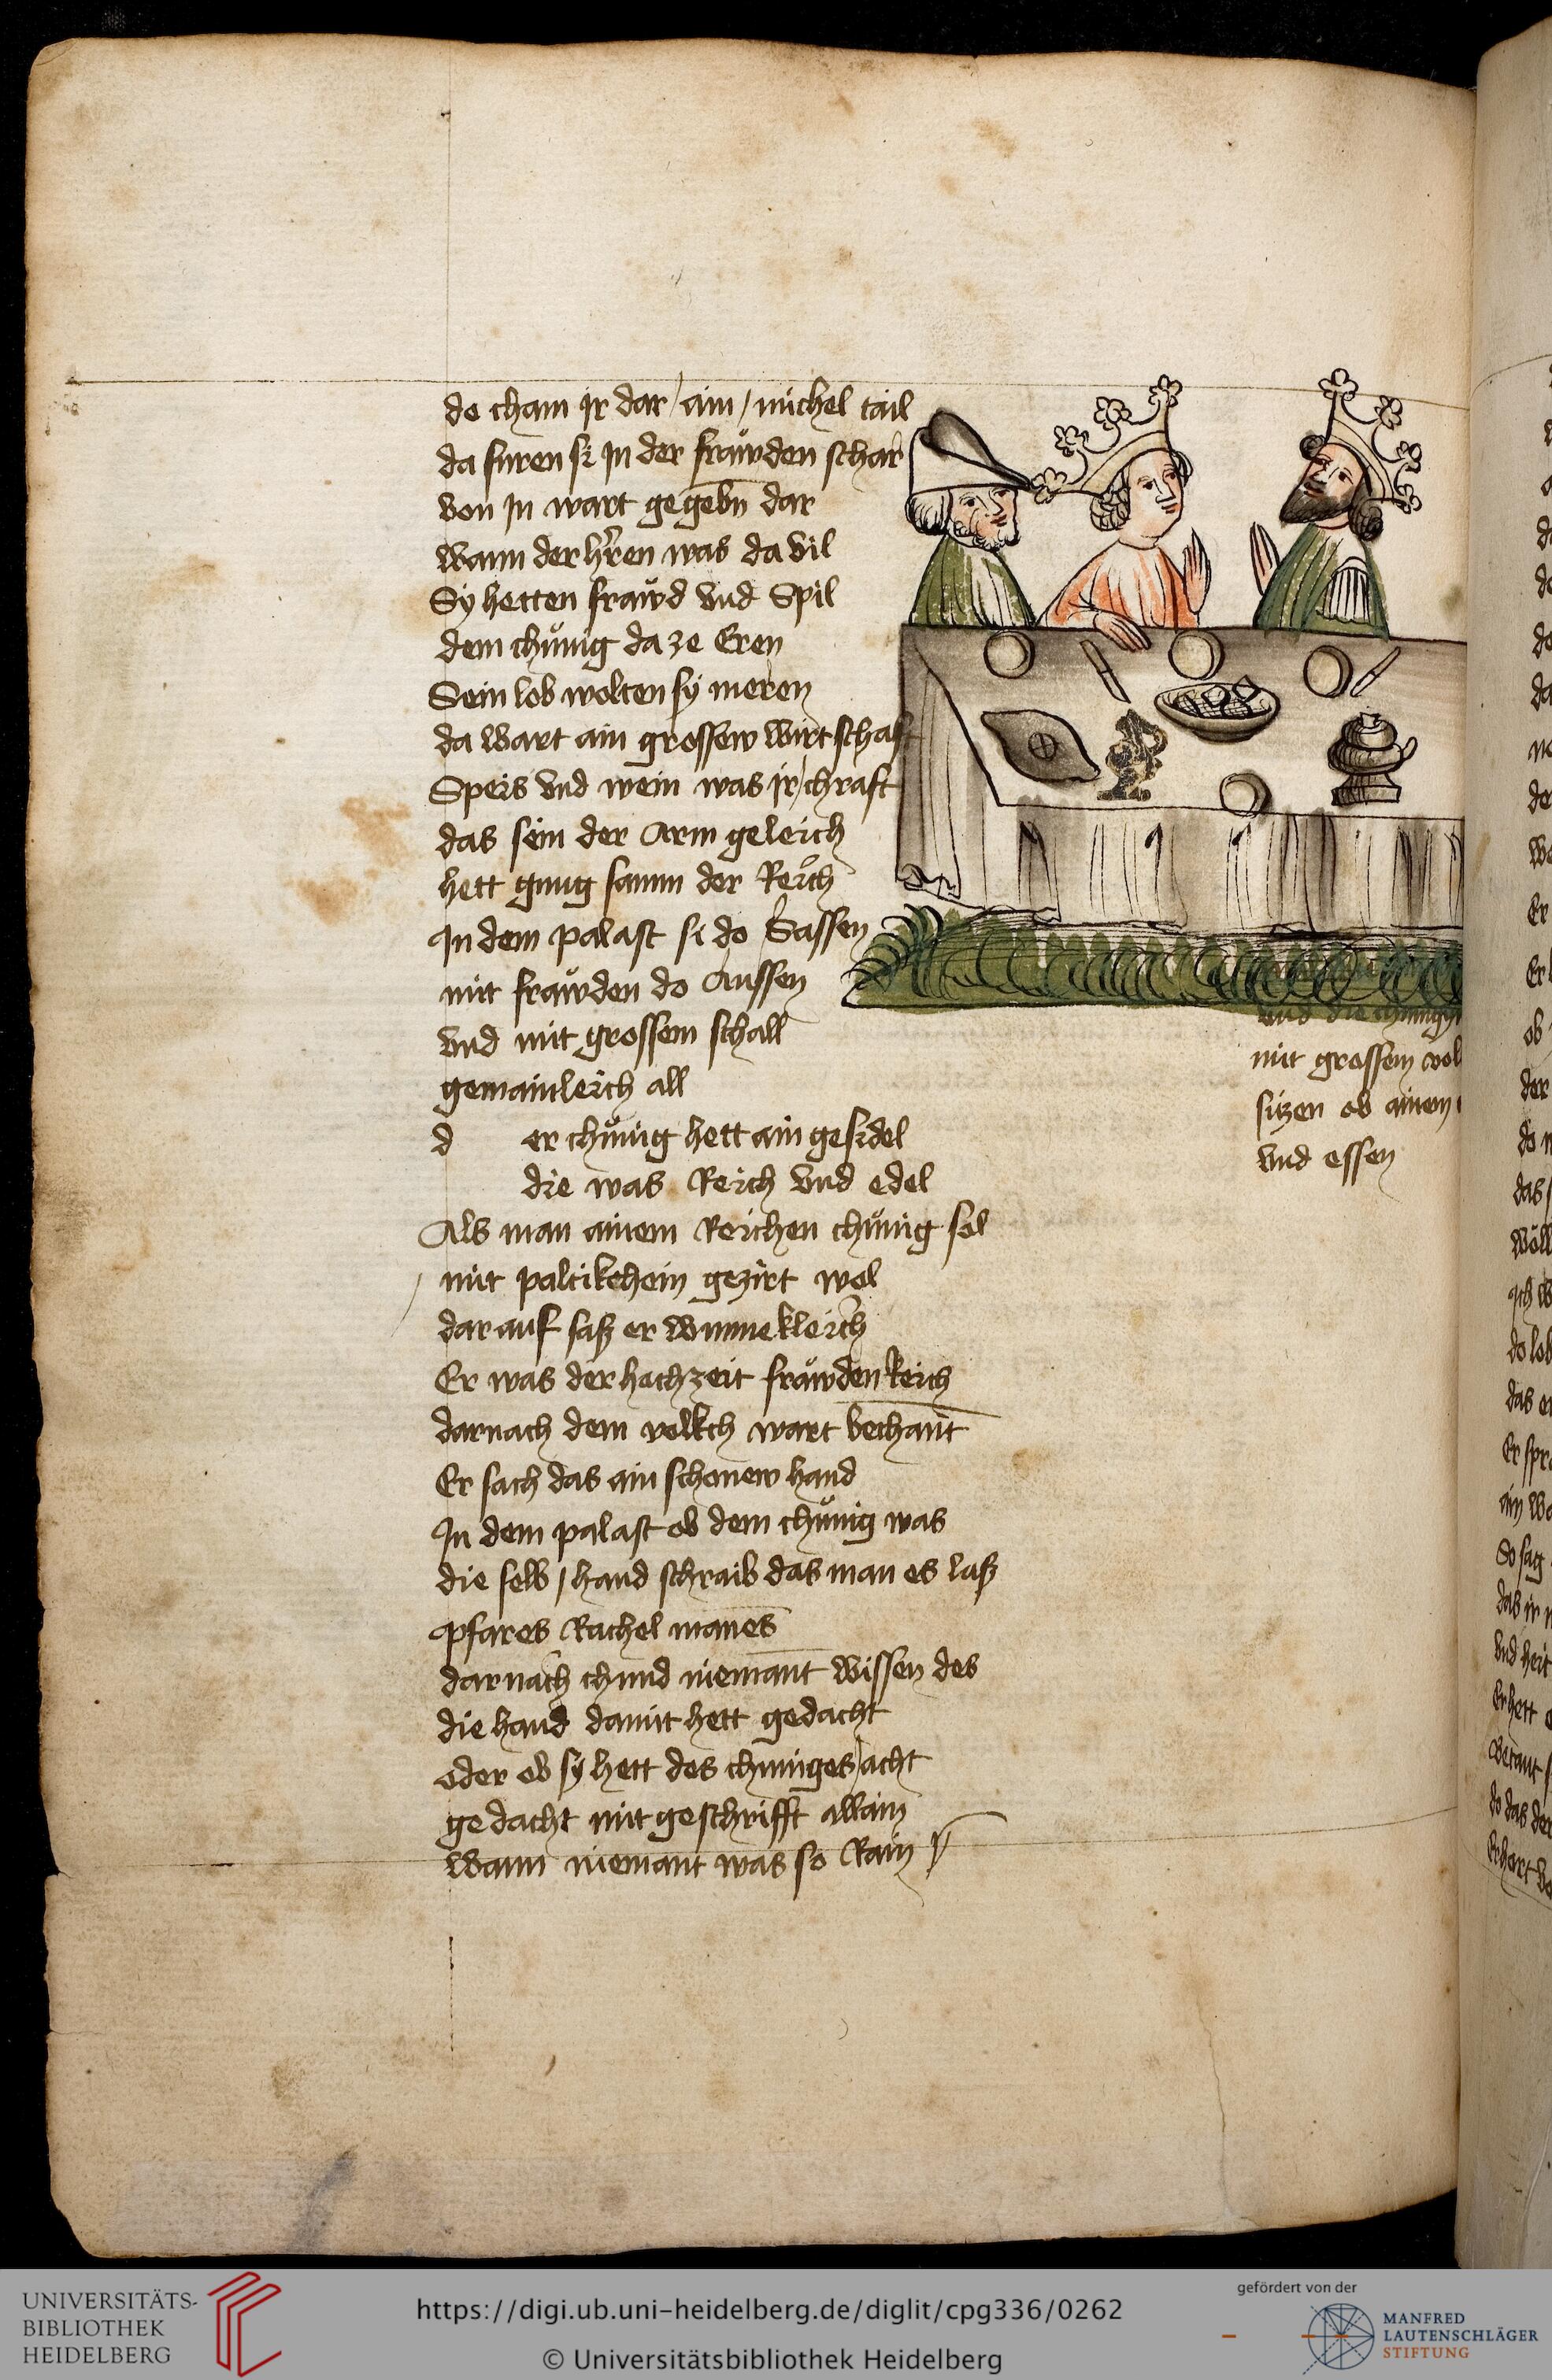 do cham ir dar ain michel tail
da furen si in der fräwden schar
von in wart gegebn dar
wann der hren was da vil
Sy hetten frawd vnd Spil
dem chünig da ze Eren
Sein lob wolten sy meren
da wart ain grossew wirtschaft
Speis vnd wein was ir chraft
das sein der Arm geleich
hett gnug samm der Reich
In dem palast si do Sassen
mit fräwden do Aussen
vnd mit grossem schall
gemainleich all
d er chünig hett ain gesidel
die was Reich vnd edel
Als man ainem Reichen chünig sol
mit paltikchein gezirt wol
darauf saß er wunnekleich
Er was der hochzeit fräwden Reich
darnach dem volkch wart bechant
Er sach das ain schonew hand
In dem palast ob dem chünig was
die selb hand schraib das man es laß
pfares Rachel manes
darnach chund niemant wissen des
die hand damit hett gedacht
oder ob sy hett des chuniges acht
gedacht mit geschrifft allain
wann niemant was so Rain
vnd die
mit grossem
siczen ob ainem
vnd essen
UNIVERSITÄTS-
BIBLIOTHEK
HEIDELBERG
https://digi.ub.uni-heidelberg.de/diglit/cpg336/0262
© Universitätsbibliothek Heidelberg
gefördert von der
MANFRED
LAUTENSCHLÄGER
STIFTUNG